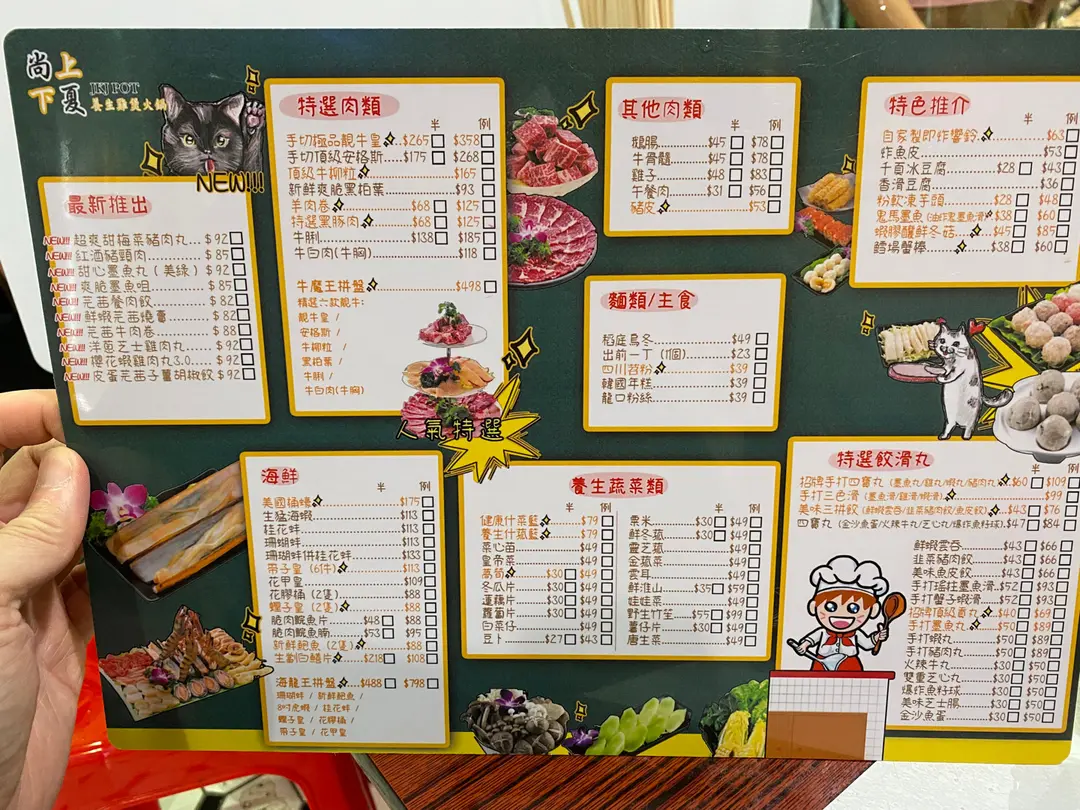 尚上
下夏
JKJ POT
養生雞煲火鍋
NEW!!!
最新推出
NEW!!! 超爽甜梅菜豬肉丸...$92
NEW!!! 紅酒豬頸肉...$85
NEW!!! 甜心墨魚丸(美綠)$92
NEW!!! 爽脆墨魚咀...$85
NEW!!! 芫茜餐肉餃...$82
NEW!!! 鮮蝦芫茜燒賣...$82
NEW!!! 芫茜牛肉卷...$88
NEW!!! 洋蔥芝士雞肉丸...$92
NEW!!! 櫻花蝦雞肉丸3.0...$92
NEW!!! 皮蛋芫茜子薑胡椒餃$92
特選肉類
半 例
手切極品靚牛皇...$265 $358
手切頂級安格斯...$175 $268
頂級牛柳粒...$165
新鮮爽脆黑柏葉...$93
羊肉卷...$68 $125
特選黑豚肉...$68 $125
牛脷...$138 $185
牛白肉(牛胸)...$118
牛魔王拼盤...$498
精選六款靚牛:
靚牛皇 /
安格斯 /
牛柳粒 /
黑柏葉 /
牛脷 /
牛白肉(牛胸)
人氣特選
其他肉類
半 例
鵝腸...$45 $78
牛骨髓...$45 $78
雞子...$48 $83
午餐肉...$31 $56
豬皮...$53
麵類/主食
稻庭烏冬...$49
出前一丁(1個)...$23
四川苕粉...$39
韓國年糕...$39
龍口粉絲...$39
特色推介
半 例
自家製即炸響鈴...$63
炸魚皮...$53
千頁冰豆腐...$28 $43
香滑豆腐...$36
粉飲凍芋頭...$28 $48
鬼馬墨魚(油炸鬼墨魚滑)$38 $60
蝦膠釀鮮冬菇...$45 $85
鱈場蟹棒...$38 $60
海鮮
半 例
美國桶蠔...$175
生猛海蝦...$113
桂花蚌...$113
珊瑚蚌...$113
珊瑚蚌併桂花蚌...$133
帶子皇(6件)...$113
花甲皇...$109
花膠桶(2隻)...$88
螺子皇(2隻)...$88
脆肉鯇魚片...$48 $88
脆肉鯇魚腩...$53 $95
新鮮鮑魚(2隻)...$88
生劏白鱔片...$218 $108
海龍王拼盤...$488 $798
珊瑚蚌 / 新鮮鮑魚 /
8吋虎蝦 / 桂花蚌 /
螺子皇 / 花膠桶 /
帶子皇 / 花甲皇
養生蔬菜類
半 例
健康什菜籃...$79
養生什菰籃...$79
菜心苗...$49
皇帝菜...$49
萵筍...$30 $49
冬瓜片...$30 $49
蓮藕片...$30 $49
蘿蔔片...$30 $49
白菜仔...$49
豆卜...$27 $43
半 例
粟米...$30 $49
鮮冬菰...$30 $49
靈芝菰...$49
金菰菜...$49
雲耳...$49
鮮淮山...$35 $59
娃娃菜...$49
野生竹笙...$55 $99
薯仔片...$30 $49
唐生菜...$49
特選餃滑丸
半 例
招牌手打四寶丸(墨魚丸/雞丸/蝦丸/豬肉丸)$60 $109
手打三色滑(墨魚滑/雞滑/蝦滑)...$99
美味三拼餃(鮮蝦雲吞/韮菜豬肉餃/魚皮餃)$43 $76
四寶丸(金沙魚蛋/火辣牛丸/芝心丸/爆炸魚籽球).$47 $84
鮮蝦雲吞...$43 $66
韮菜豬肉餃...$43 $66
美味魚皮餃...$43 $66
手打瑤柱墨魚滑.$52 $93
手打蟹子蝦滑...$52 $93
招牌頂級貢丸...$40 $69
手打墨魚丸...$50 $89
手打蝦丸...$50 $89
手打豬肉丸...$50 $89
火辣牛丸...$30 $50
雙重芝心丸...$30 $50
爆炸魚籽球...$30 $50
美味芝士腸...$30 $50
金沙魚蛋...$30 $50